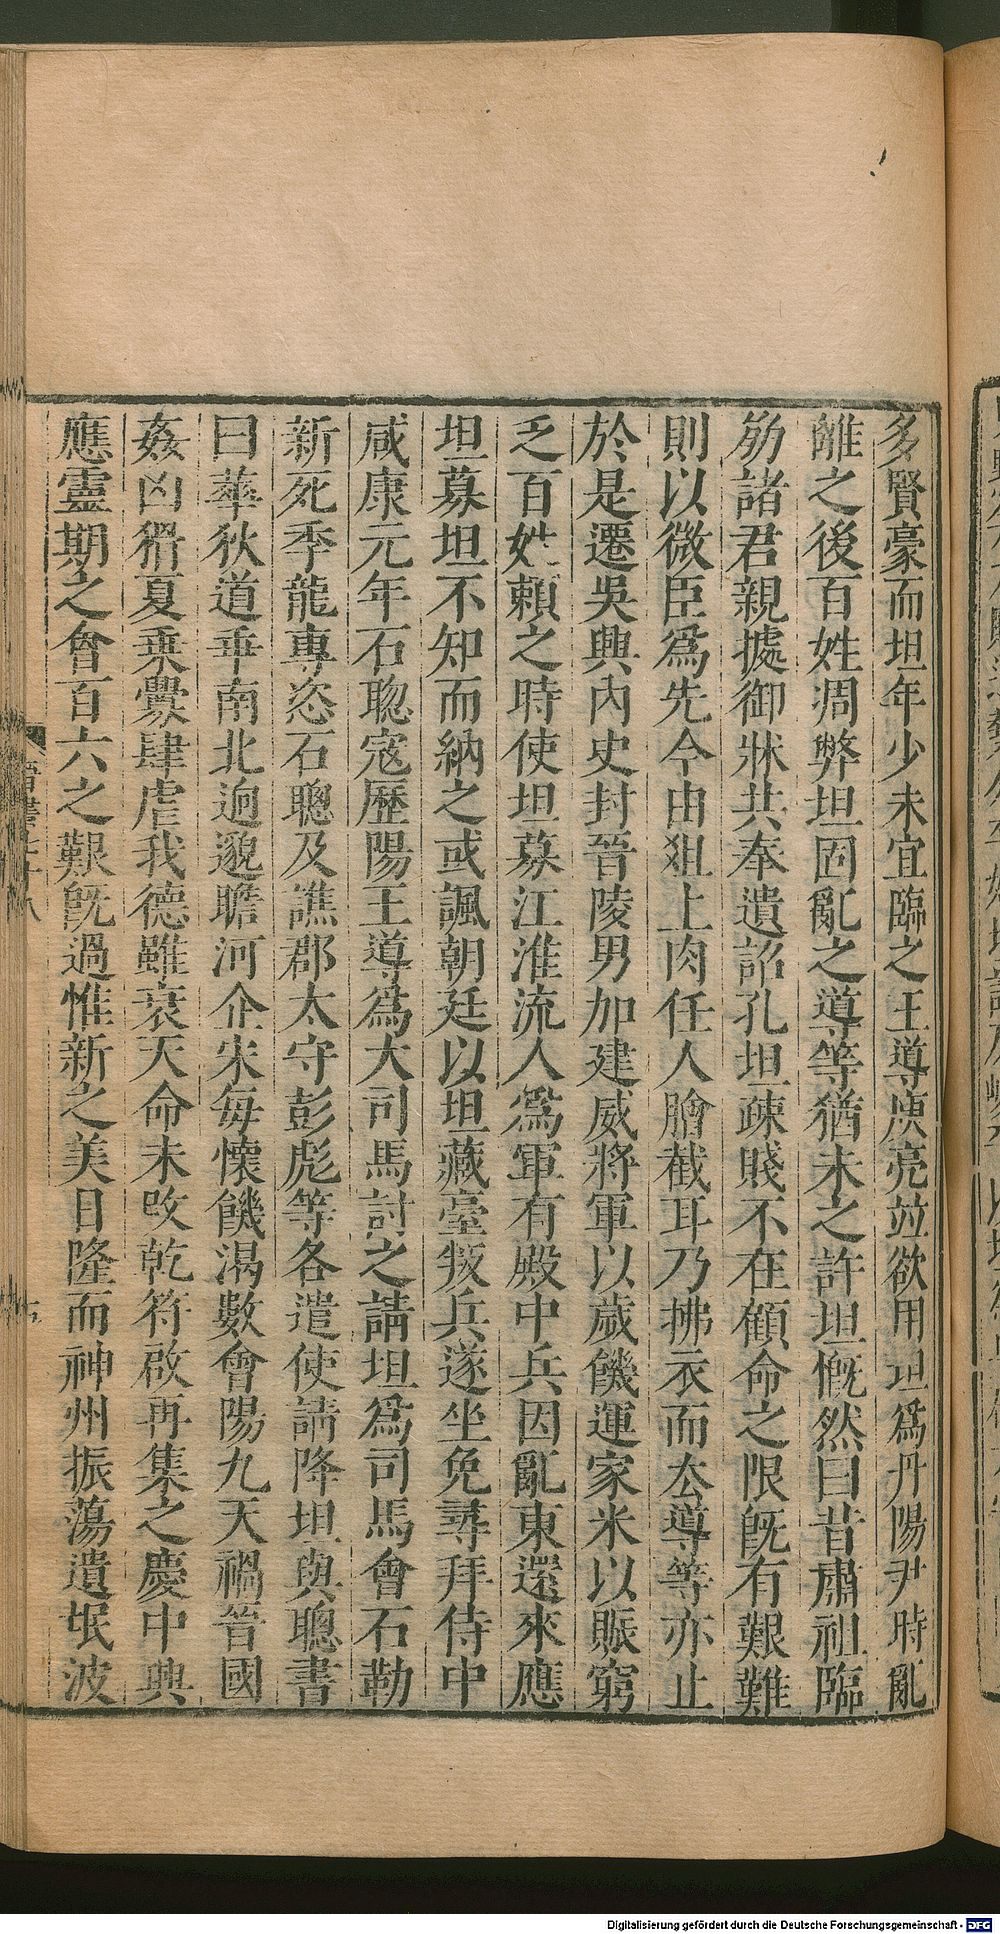 多賢豪而坦年少未宜臨之王導庾亮並欲用坦爲丹陽尹時亂
離之後百姓凋弊坦固亂之道等猶未之許坦慨然曰昔肅祖臨
崩諸君親據御牀共奉遺詔孔坦疎賤不在顧命之限旣有艱難
則以微臣爲先今由俎上肉任人膾截耳乃拂衣而去導等亦止
於是遷吳興內史封晉陵男加建威將軍以歲饑運家米以賑窮
乏百姓賴之時使坦募江淮流人爲軍有殿中兵因亂東還來應
坦募坦不知而納之或諷朝廷以坦藏臺叛兵遂坐免尋拜侍中
咸康元年石聰寇歷陽王導爲大司馬討之請坦爲司馬會石勒
新死季龍專恣石聰及譙郡太守彭彪等各遣使請降坦與聰書
曰華狄道乖南北逈邈瞻河企宋每懷饑渴數會陽九天禍晉國
姦凶猾夏乗釁肆虐我德雖衰天命未攺乾符啟再集之慶中興
應靈期之會百六之艱旣過惟新之美日隆而神州振蕩遺氓波
晉書七十八
Digitalisierung gefördert durch die Deutsche Forschungsgemeinschaft - DFG